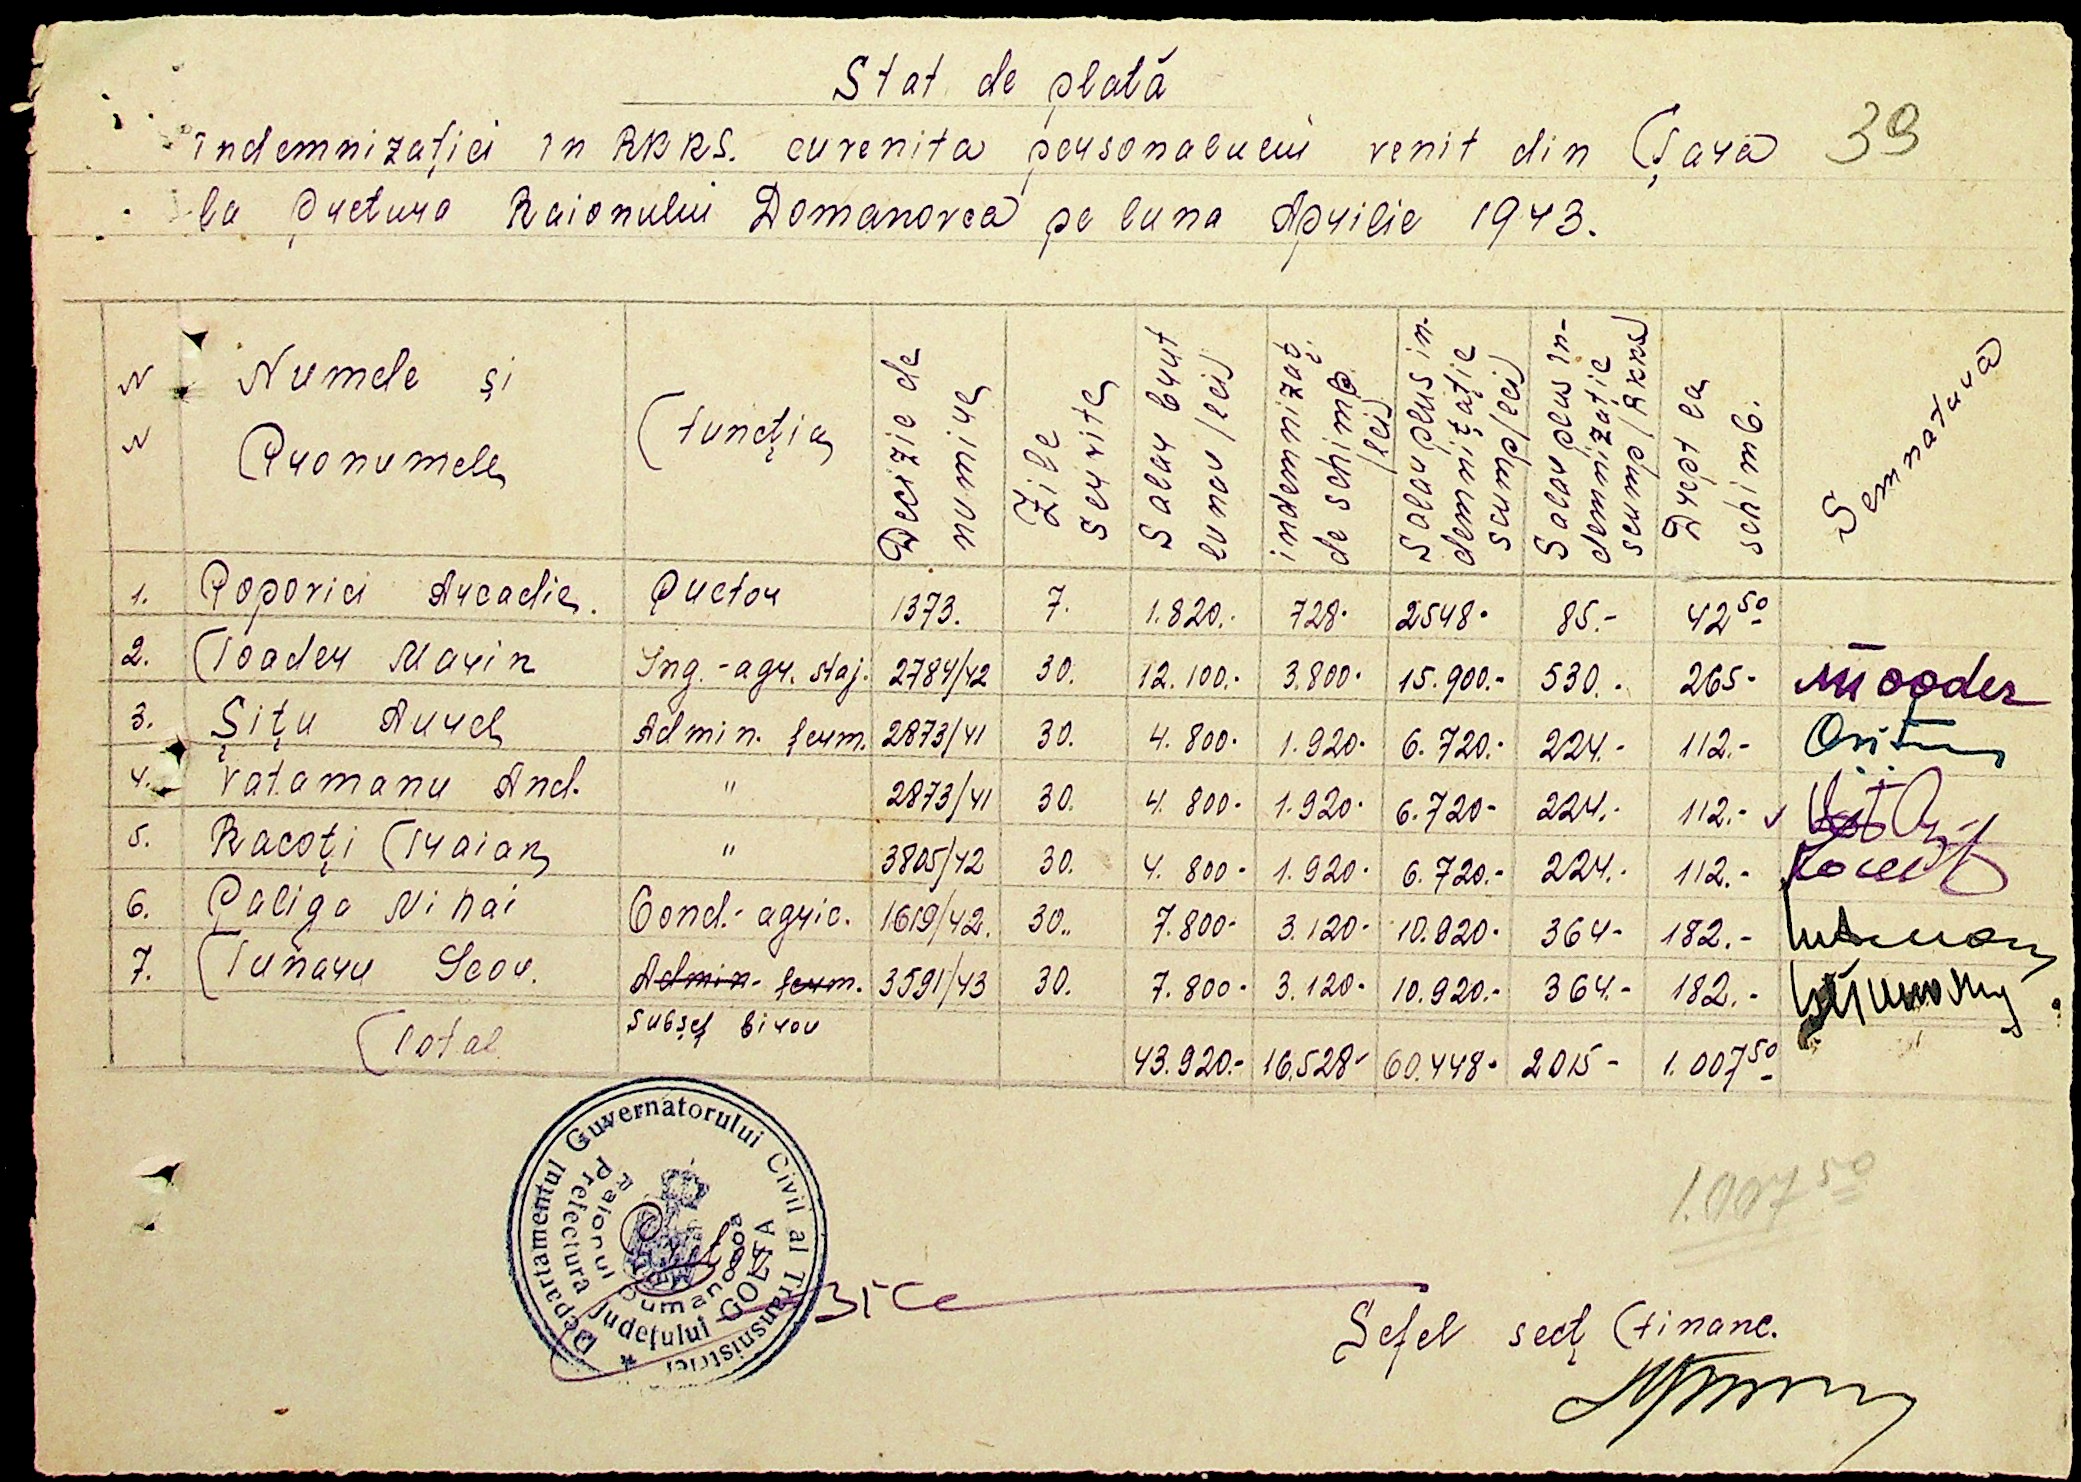 Stat de plată
39
indemnizației in RKKS. cuvenita personalului venit din Țara
la Pretura Raionului Domanovca pe luna Aprilie 1943.
N N Numele și Pronumele Funcția Decizie de numire Zile servite Salar brut lunar /lei/ indemnizaț. de schimb /lei/ Salar plus indemnițație scump/lei/ Salar plus indemnizație scump/RKKS/ Drept la schimb. Semnatura
1. Popovici Arcadie. Pretor 1373. 7. 1.820.- 728- 2548- 85.- 42 50
2. Toader Marin Ing.-agr. staj. 2784/42 30. 12.100.- 3.800- 15.900.- 530.- 265-
3. Șițu Aurel Admin. ferm. 2873/41 30. 4.800- 1.920- 6.720.- 224.- 112.-
4. Vatamanu And. " 2873/41 30. 4.800- 1.920- 6.720- 224.- 112.-
5. Racoți Traian " 3805/42 30. 4.800- 1.920- 6.720.- 224.- 112.-
6. Paliga Mihai Cond.-agric. 1619/42. 30.. 7.800- 3.120- 10.920- 364- 182.-
7. Tunaru Scor. Admin- ferm. 3591/43 30. 7.800- 3.120- 10.920.- 364.- 182.-
subșef birou
Total 43.920.- 16.528- 60.448- 2015- 1.007 50
Departamentul Guvernatorului Civil al Transnistriei
Prefectura Județului GOLTA
Raionul Dumanovca
Pretor
1.007 50
Șeful secț financ.